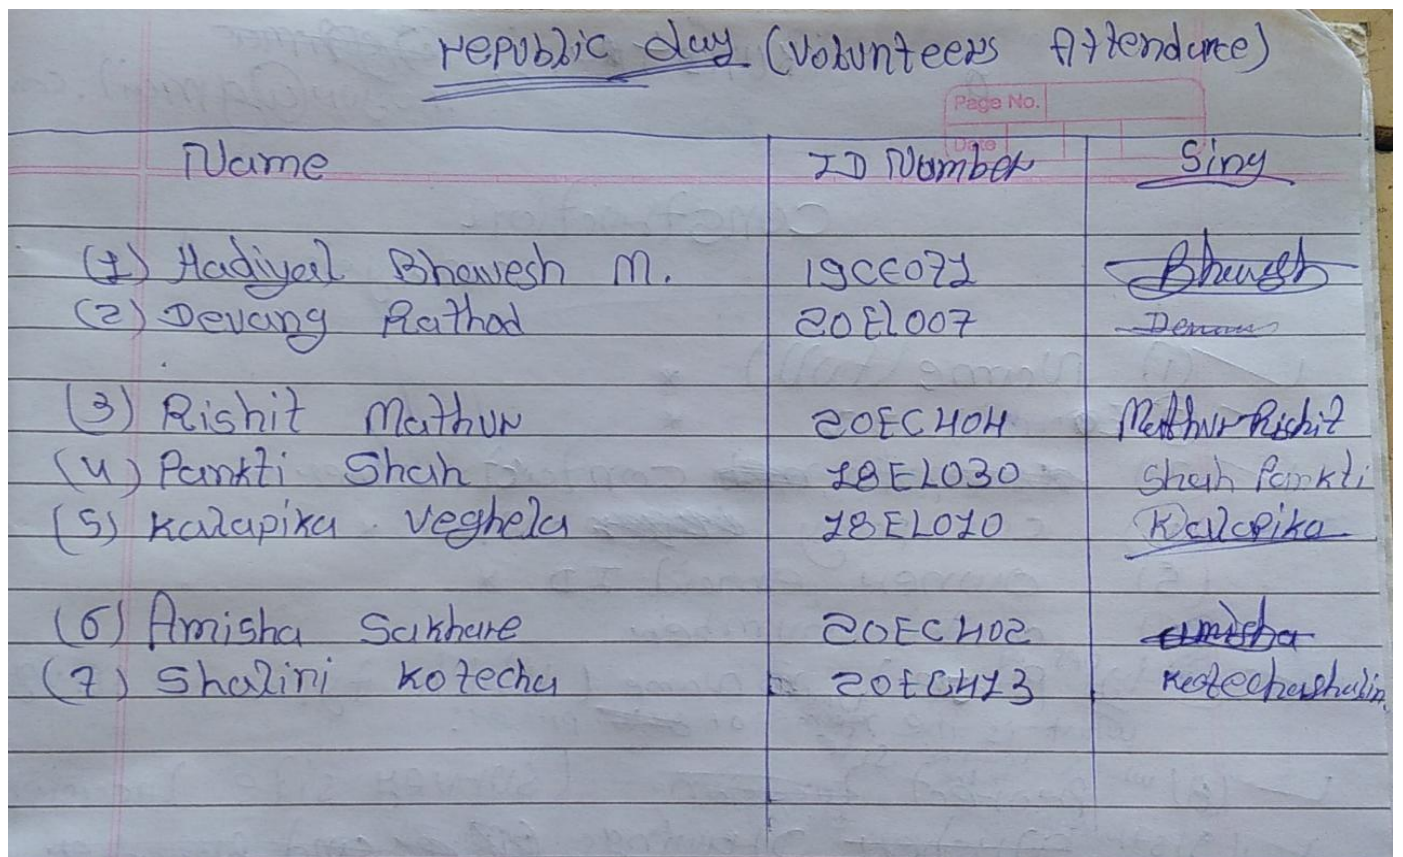 republic day (Volunteers Attendance)
Page No.
Date
Name ID Number Sing
(1) Hadiyal Bhavesh M. 19CE071 Bhavesh
(2) Devang Rathod 20EL007
(3) Rishit Mathur 20EC404 Mathur Rishit
(4) Pankti Shah 18EL030 Shah Pankti
(5) Kalapika Veghela 18EL010 Kalapika
(6) Amisha Sakhare 20EC402 amisha
(7) Shalini Kotecha 20EC413 Kotechashalin